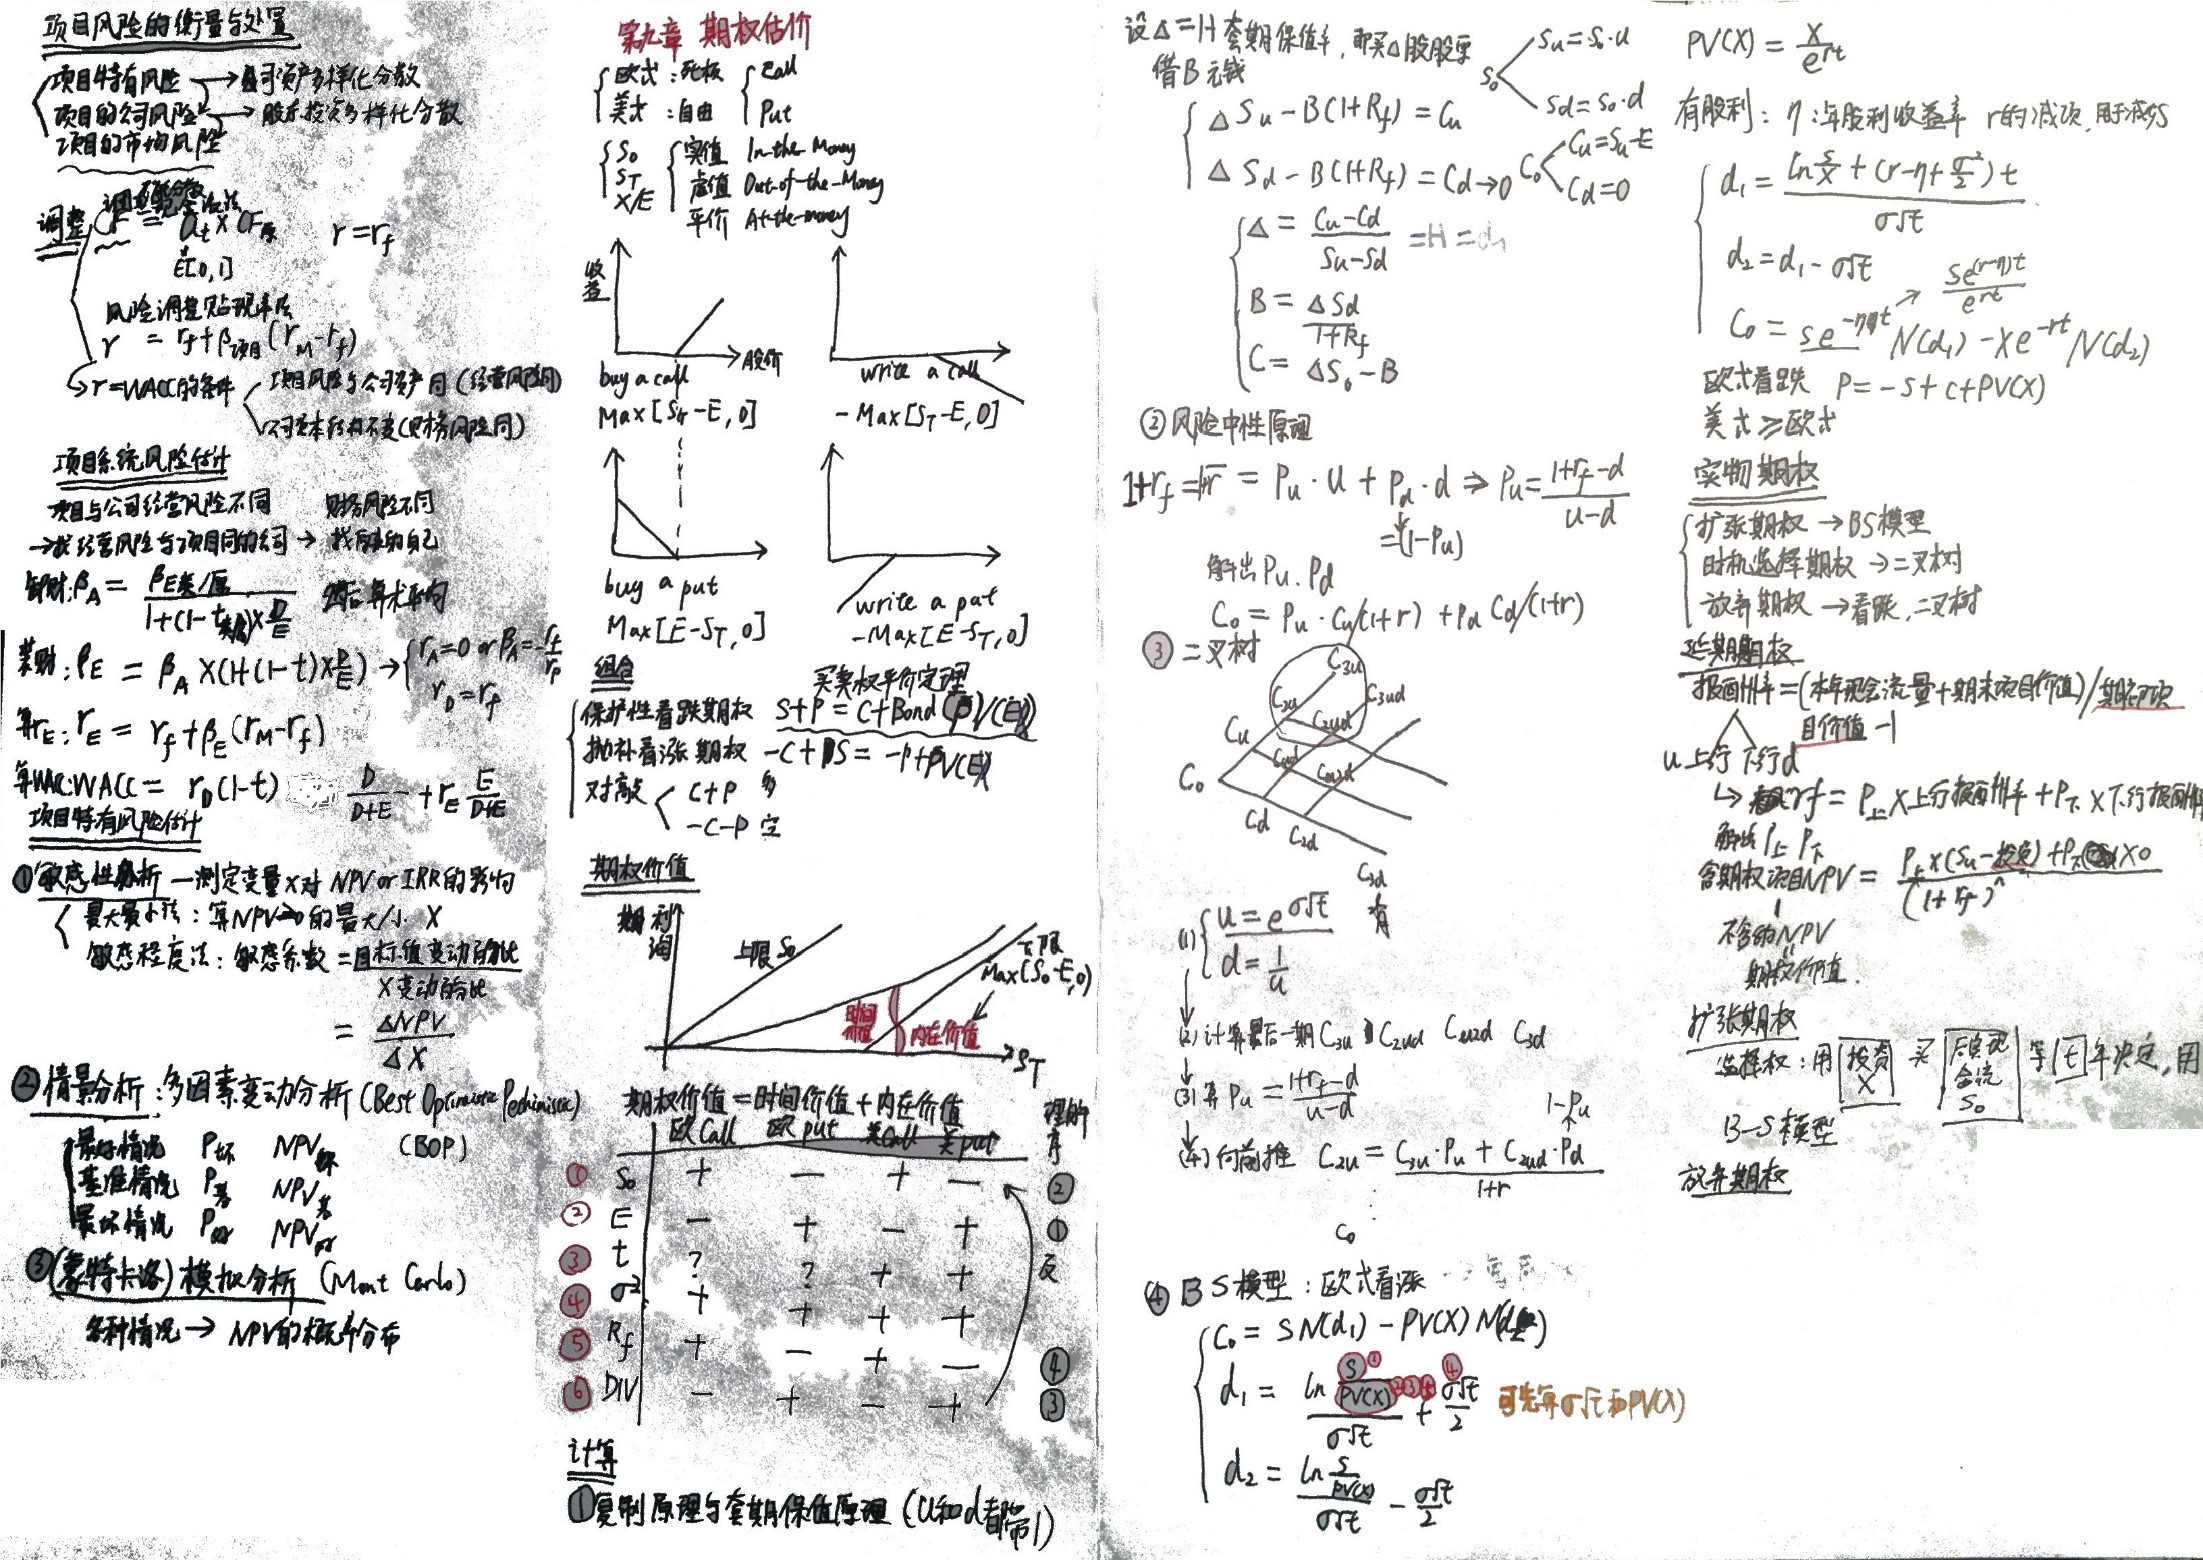 项目风险的衡量与处置
项目特有风险 → 公司资产多样化分散
项目的公司风险 → 股东投资多样化分散
项目的市场风险
调整
CF = at × CF原 r = rf
∈[0,1]
风险调整贴现率法
r = rf + β项目(rM - rf)
r=WACC的条件
项目风险与公司资产同(经营风险同)
公司资本结构不变(财务风险同)
项目系统风险估计
项目与公司经营风险不同 财务风险不同
→找经营风险与项目同的公司 →
卸财:βA = βE类/原 / 1+(1-t类原)×D/E 然后算术平均
装财:βE = βA×(1+(1-t)×D/E) → { rA=0 or βA=-rf/rp
rD=rf
算rE: rE = rf + βE(rM-rf)
算WACC: WACC = rD(1-t) D/D+E + rE E/D+E
项目特有风险估计
①敏感性分析 — 测定变量X对NPV or IRR的影响
最大最小法:算NPV=0的最大/小 X
敏感程度法:敏感系数 = 目标值变动百分比 / X变动百分比
= ΔNPV / ΔX
②情景分析:多因素变动分析(Best Optimistic Pessimistic)
最好情况 P好 NPV好 (BOP)
基准情况 P基 NPV基
最坏情况 P坏 NPV坏
③(蒙特卡洛)模拟分析 (Mont Carlo)
各种情况 → NPV的概率分布
第九章 期权估价
欧式:死板 Call
美式:自由 Put
S0 实值 In-the-Money
ST 虚值 Out-of-the-Money
X/E 平价 At-the-money
收益
股价
buy a call write a call
Max[ST-E, 0] -Max[ST-E, 0]
buy a put write a put
Max[E-ST, 0] -Max[E-ST, 0]
组合 买卖权平价定理
保护性看跌期权 S+P = C+Bond PV(EX)
抛补看涨期权 -C+S = -P+PV(EX)
对敲 C+P 多
-C-P 空
期权价值
期利润
上限 S0
下限
Max(S0-E,0)
时间价值 内在价值
ST
期权价值=时间价值+内在价值
欧Call 欧put 美Call 美put
① S0 + — + — ②
② E — + — + ①
③ t ? ? + + 反
④ σ² + + + +
⑤ Rf + — + — ④
⑥ DIV — + — + ③
计算
①复制原理与套期保值原理(u和d都带1)
设Δ=H 套期保值率,即买Δ股股票
借B元钱
S0 Su=S0·u
Sd=S0·d
ΔSu - B(1+Rf) = Cu
ΔSd - B(1+Rf) = Cd→0
C0 Cu=Su-E
Cd=0
Δ = Cu-Cd / Su-Sd = H = d1
B = ΔSd / 1+Rf
C = ΔS0 - B
②风险中性原理
1+rf = 1+r̄ = Pu·u + Pd·d ⇒ Pu = 1+rf-d / u-d
=(1-Pu)
解出Pu.Pd
C0 = Pu·Cu/(1+r) + Pd Cd/(1+r)
③二叉树
C3u
C2u
C3ud
Cu C2ud
C0 Cud Cu2d
Cd C2d
C3d
(1) u = e^σ√t
d = 1/u
(2) 计算最后一期 C3u C2ud Cu2d C3d
(3) 算 Pu = 1+rf-d / u-d
1-Pu
(4) 向前推 C2u = C3u·Pu + C2ud·Pd / 1+r
C0
④ BS模型:欧式看涨
C0 = SN(d1) - PV(X)N(d2)
d1 = ln S/PV(X) / σ√t + σ√t/2 可先算σ√t和PV(X)
d2 = ln S/PV(X) / σ√t - σ√t/2
PV(X) = X / e^rt
有股利:η:年股利收益率 r的减项,用于减S
d1 = ln S/X + (r-η+σ²/2)t / σ√t
d2 = d1 - σ√t
Se^(r-η)t / e^rt
C0 = Se^-ηt N(d1) - Xe^-rt N(d2)
欧式看跌 P=-S+C+PV(X)
美式≥欧式
实物期权
扩张期权 → BS模型
时机选择期权 → 二叉树
放弃期权 → 看跌,二叉树
延期期权
报酬率=(本年现金流量+期末项目价值)/期初项
目价值 -1
u上行 下行d
rf = P上×上行报酬率 + P下×下行报酬率
解出P上 P下
含期权项目NPV = P上×(Su-投资)+P下×0 / (1+rf)^n
不含的NPV
期权价值.
扩张期权
选择权:用 投资X 买 后续现金流S0 等 t 年决定,用
B-S模型
放弃期权